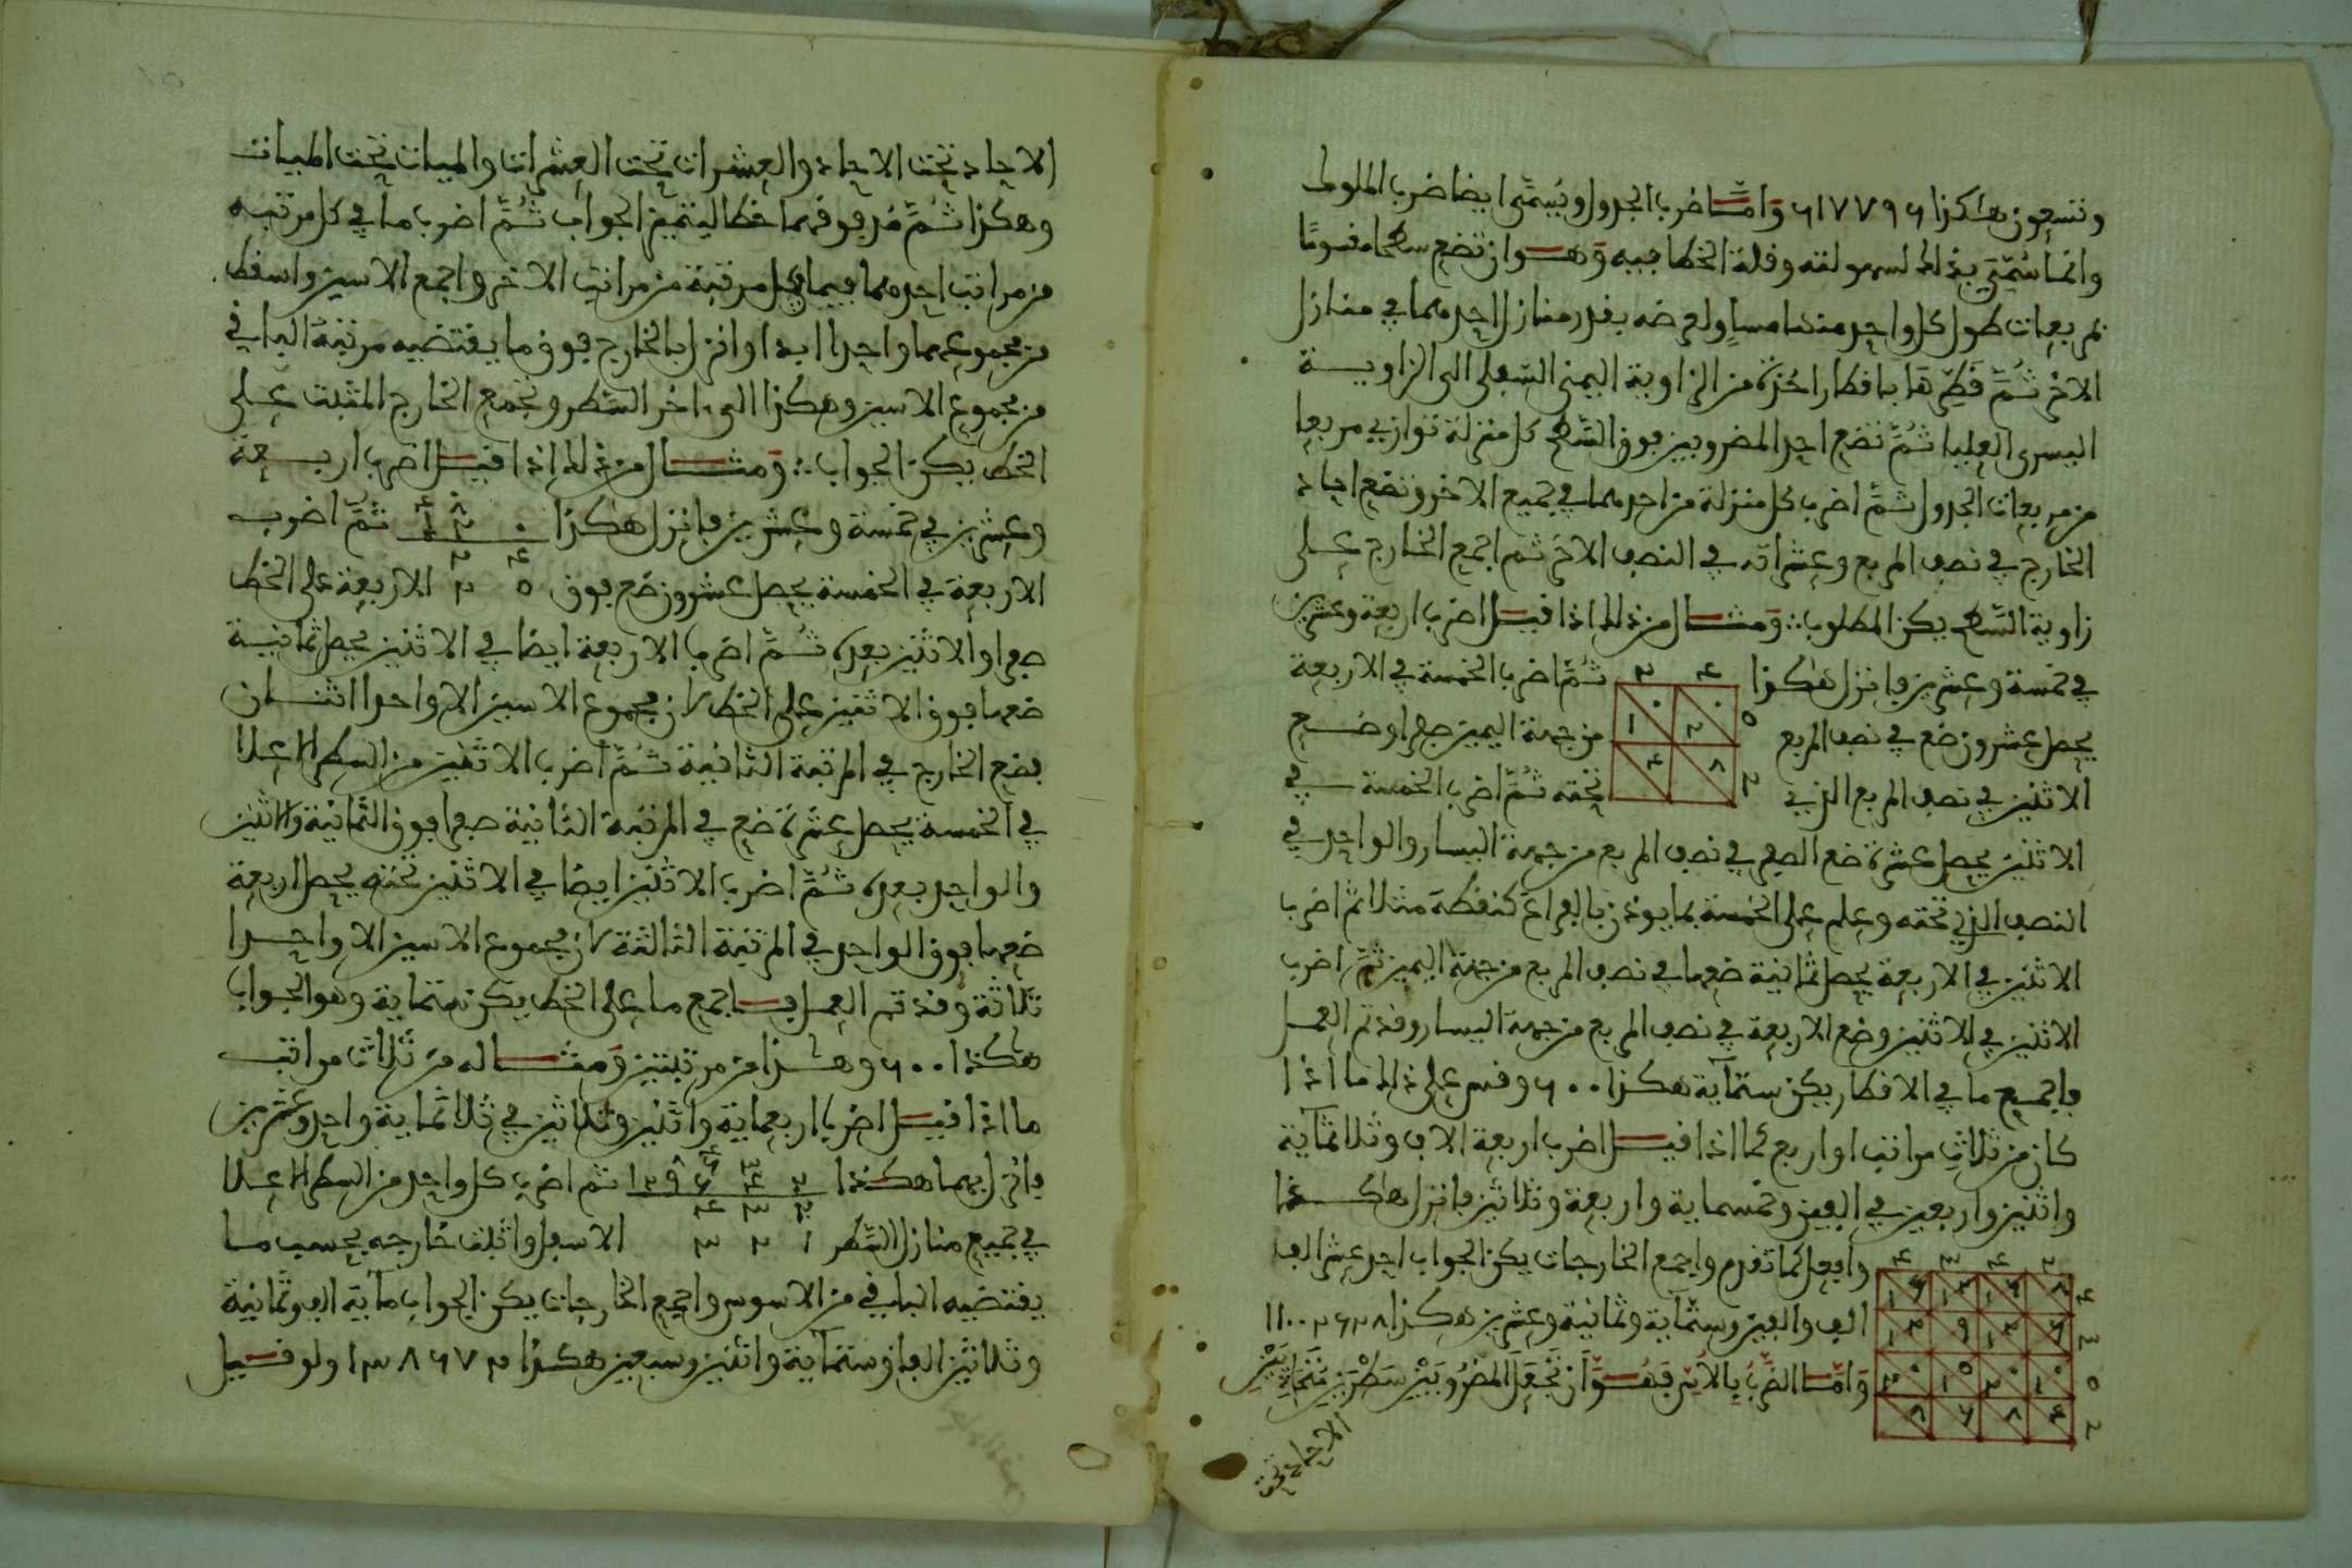 وتسعون هكذا ٦١٧٧٩٦ وَامَّا ضرب الجدول ويُسمَّى ايضا ضرب الملوك
وانما سُمّيَ بذلك لسهولته وقلة الخطا فيه وَهـو ان تضع سطحا مقسومًا
بمربعات طول كل واحد منها مساوٍ لعرضه بقدر منازل احدهما في منازل
الاخر ثُمَّ قَطِّرها باقطار اخذة من الزاوية اليمنى السفلى الى الزاويـة
اليسرى العليا ثُمَّ تضع احد المضروبين فوق السطح كل منزلة توازي مربعا
من مربعات الجدول ثُمَّ اضرب كل منزلة من احدهما في جميع الاخر وتضع احاد
الخارج في نصف المربع وعشراته في النصف الاخر ثم اجمع الخارج عـلى
زاوية السَّطح يكن المطلوب ∴ وَمثـال من ذلك اذا قيـل اضرب اربعة وعشرين
في خمسة وعشرين فانزل هكذا ٢ ٤ ثُمَّ اضرب الخمسة في الاربعة
يحصل عشرون ضع في نصف المربع ١ ٠ ٢ ٠ ٥ من جهة اليمين صفرا وضـع
الاثنين في نصف المربع الذي ٤ ٨ ٢ تحته ثُمَّ اضرب الخمسة فـي
الاثنين يحصل عشرة ضع الصفر في نصف المربع من جهة اليسار والواحد في
النصف الذي تحته وعلم على الخمسة بما يوذن بالفراغ كنقطة مثلا ثم اضرب
الاثنين في الاربعة يحصل ثمانية ضعها في نصف المربع من جهة اليمين ثمَّ اضرب
الاثنين في الاثنين وضع الاربعة في نصف المربع من جهة اليسار وقد تم العمـل
فاجمـع ما في الاقطار يكن ستمآية هكذا ٦٠٠ وقس على ذلك ما اذا
كان من ثلاث مراتب او اربع كما اذا قيـل اضرب اربعة الاف وثلاثمآية
واثنين واربعين في الفين وخمسماية واربعة وثلاثين فانزل هاكـذا
وافعل كما تقدم واجمع الخارجات يكن الجواب احد عشر الف
الف والفين وستمآية وثمانية وعشرين هكذا ١١٠٠٢٦٢٨
وَامَّـا الضَّربُ بِالاُسِّ فَهُـوَ اَن تَجْعَلَ المَضْرُوبَيْنِ سَطْرَيْنِ مُتَحَاذِيَيْنِ
الاحاد تحت
الاحاد تحت الاحاد والعشرات تحت العشرات والميات تحت الميات
وهكذا ثُمَّ مُد فوقهما خطا ليتميز الجواب ثُمَّ اضرب ما في كل مرتبـه
من مراتب احدهما فيما في كل مرتبة من مراتب الاخر واجمع الاسين واسقط
من مجموعهما واحدا ابدا وانزل بالخارج فوق ما يقتضيه مرتبةُ الباقي
من مجموع الاسين وهكذا الى اخر السَّطر وتجمع الخارج المثبت عـلى
الخط يكن الجواب ∴ وَمثـال من ذلك اذا قيـل اضرب اربـعة
وعشرين في خمسة وعشرين فانزل هكذا ثُمَّ اضرب
الاربعة في الخمسة يحصل عشرون ضع فوق ٥ ٢ الاربعة على الخط
صفرا والاثنين بعده ثُمَّ اضرب الاربعة ايضا في الاثنين يحصل ثمانيـة
ضعها فوق الاثنين على الخط لان مجموع الاسين الا واحدا اثنـان
فضع الخارج في المرتبة الثانية ثُمَّ اضرب الاثنين من السطر الاعلا
في الخمسة يحصل عشرة ضع في المرتبة الثانية صفرا فوق الثمانية والاثنين
والواحد بعده ثُمَّ اضرب الاثنين ايضا في الاثنين تحته يحصل اربعة
ضعها فوق الواحد في المرتبة الثالثة لان مجموع الاسين الا واحـدا
ثلاثة وقد تم العمـل فـاجمع ما على الخط يكن ستماية وهو الجواب
هكذا ٦٠٠ وهـذا من مرتبتين وَمثـاله من ثلاث مراتب
ما اذا قيـل اضرب اربعماية واثنين وثلاثين في ثلاثماية واحد وعشرين
فانزل بهما هكذا ثم اضرب كل واحد من السطر الاعـلا
في جميع منازل السَّطر ١ ٢ ٣ الاسفل واثبت خارجه بحسب مـا
يقتضيه الباقي من الاسوس واجمع الخارجات يكن الجواب مآية الف وثمانية
وثلاثين الفا وستمآية واثنين وسبعين هكذا ١٣٨٦٧٢ ولو قـيل